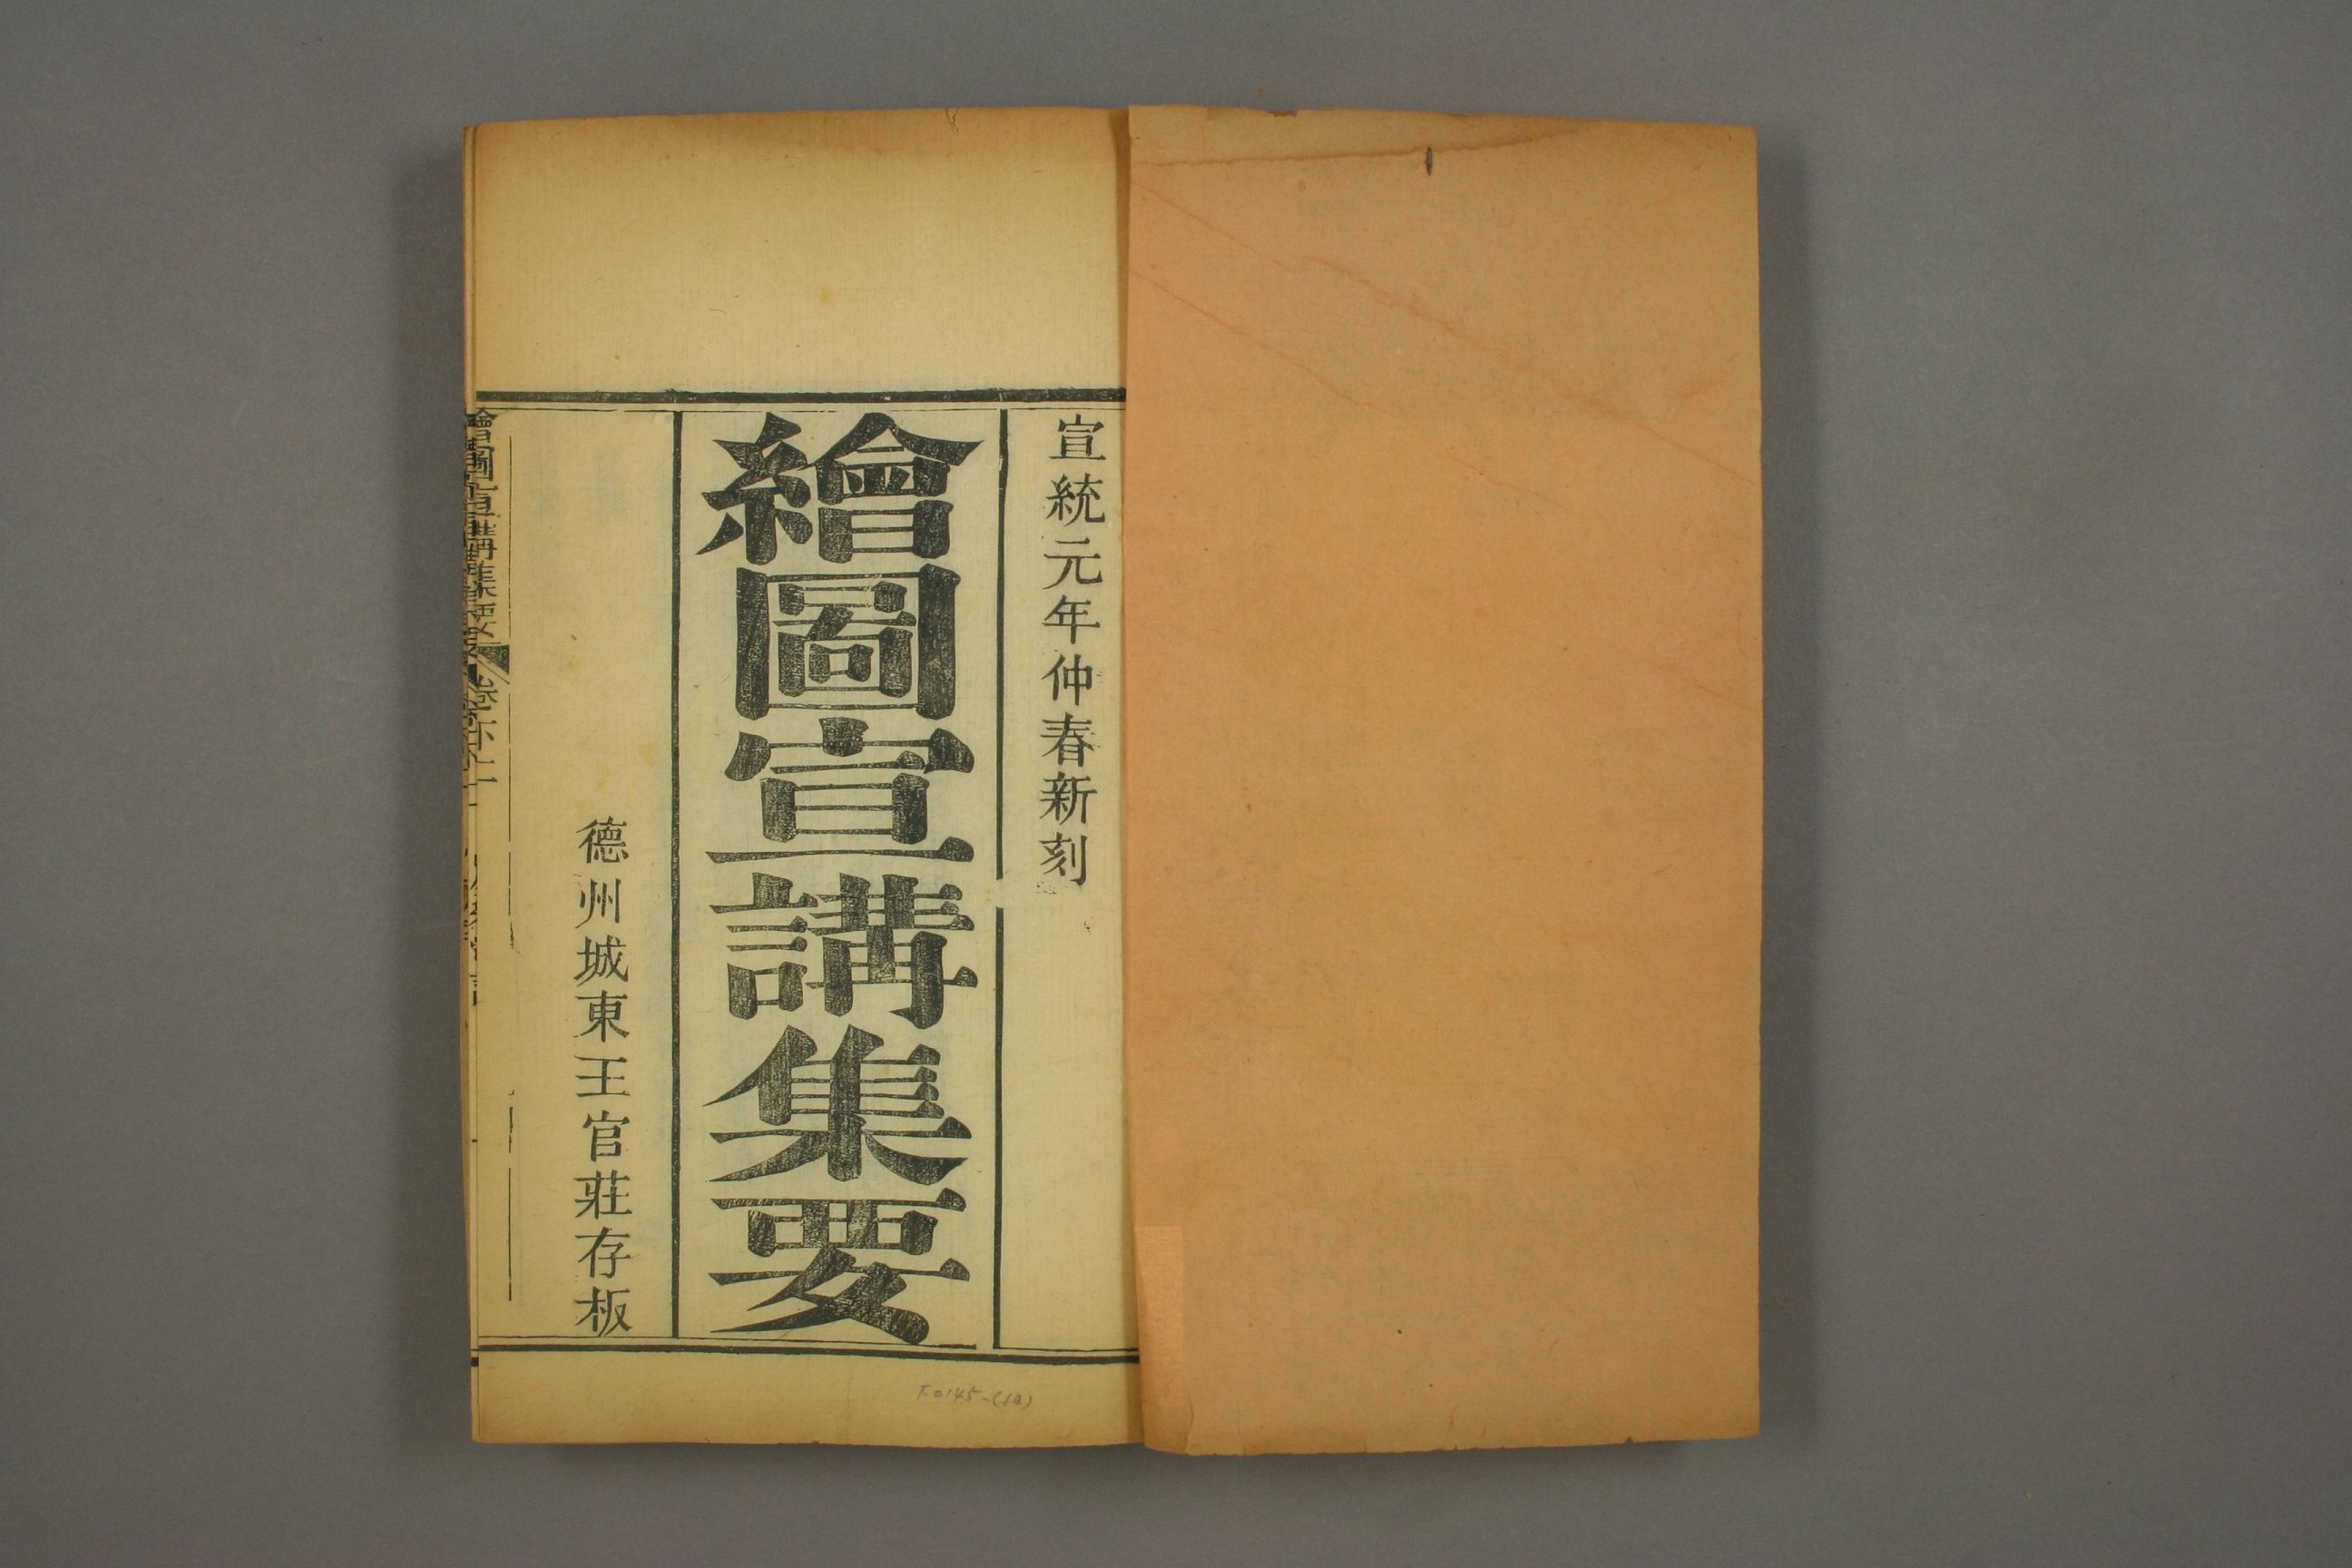 宣統元年仲春新刻
繪圖宣講集要
德州城東王官莊存板
繪圖宣講集要
F0145-(14)